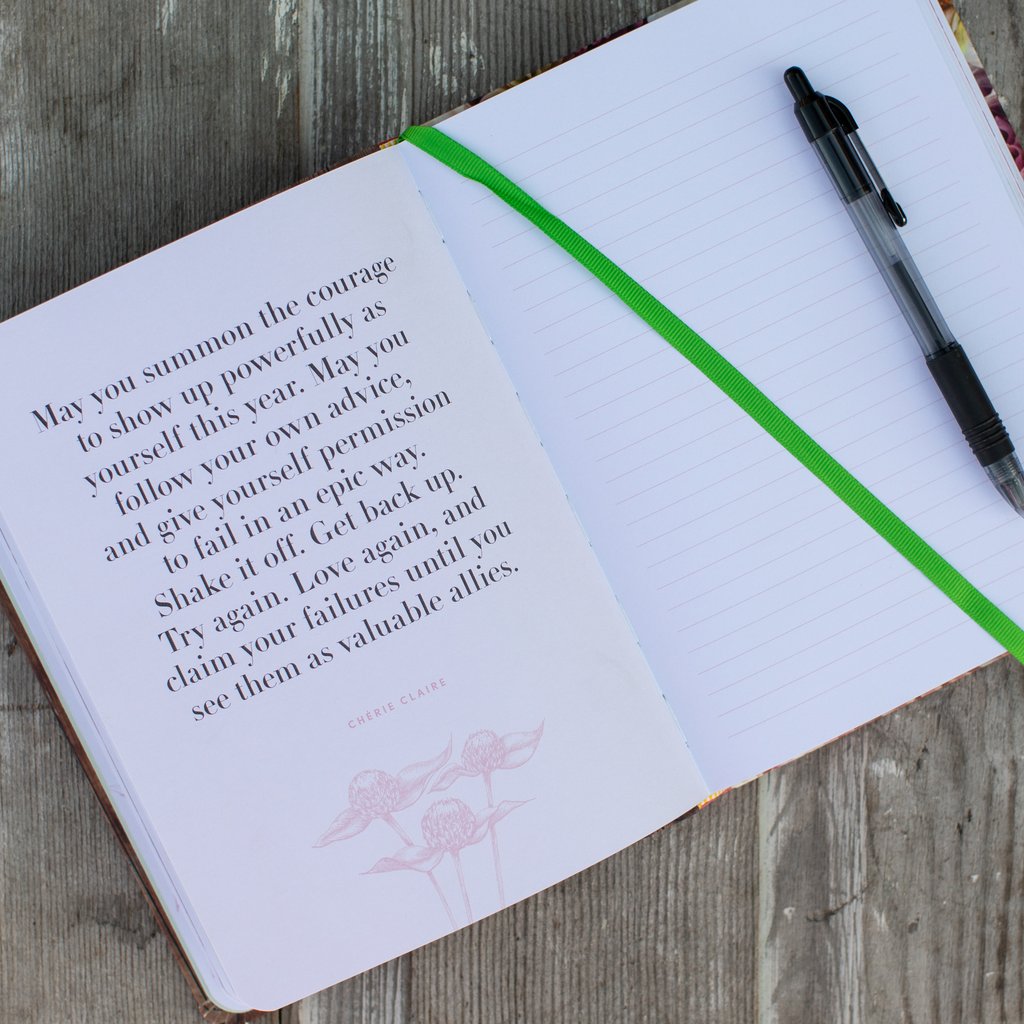 May you summon the courage
to show up powerfully as
yourself this year. May you
follow your own advice,
and give yourself permission
to fail in an epic way.
Shake it off. Get back up.
Try again. Love again, and
claim your failures until you
see them as valuable allies.
CHÉRIE CLAIRE